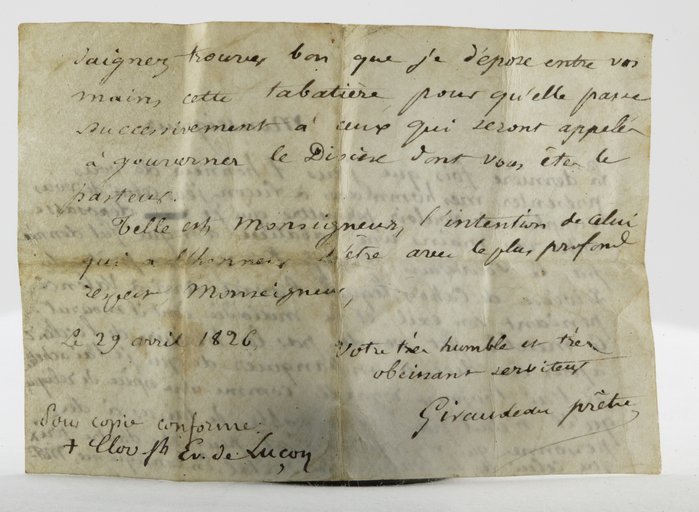 daignez trouver bon que je dépose entre vos
mains cette tabatiere pour qu'elle passe
successivement à ceux qui seront appelés
à gouverner le Diocèse dont vous êtes le
pasteur.
Telle est Monseigneur, l'intention de celui
qui a l'honneur d'être avec le plus profond
respect, Monseigneur,
Le 29 avril 1826
Votre très humble et très
obéissant serviteur
Giraudeau prêtre
Pour copie conforme.
+ Ev. de Luçon